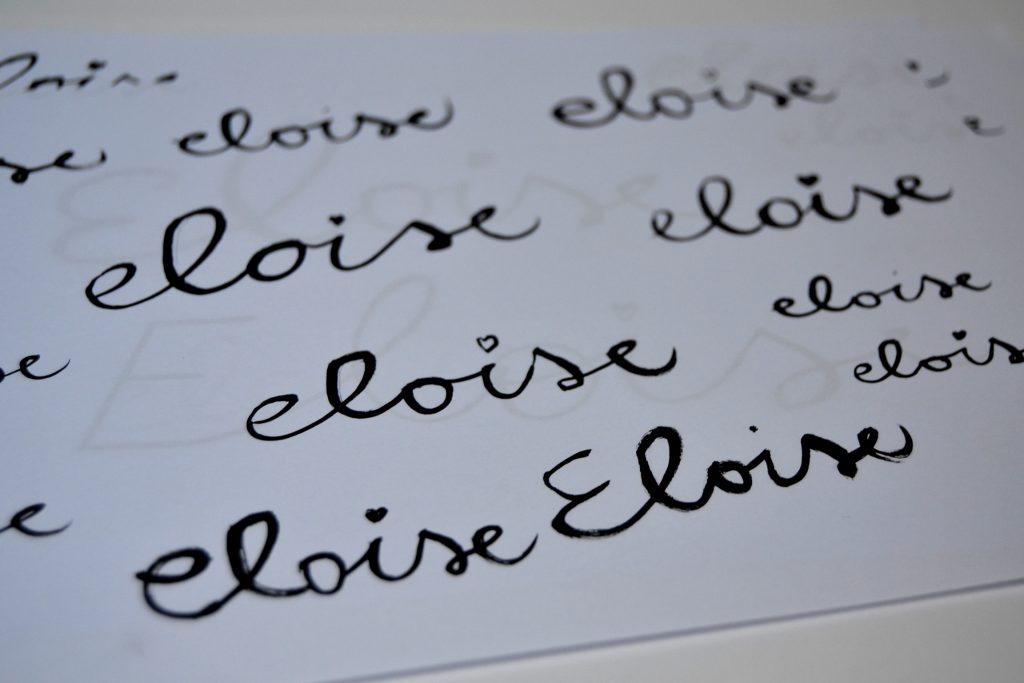 eloise eloise
se
eloise eloise
Eloise
eloise
eloise elois
se
Eloise
eloise Eloise
e